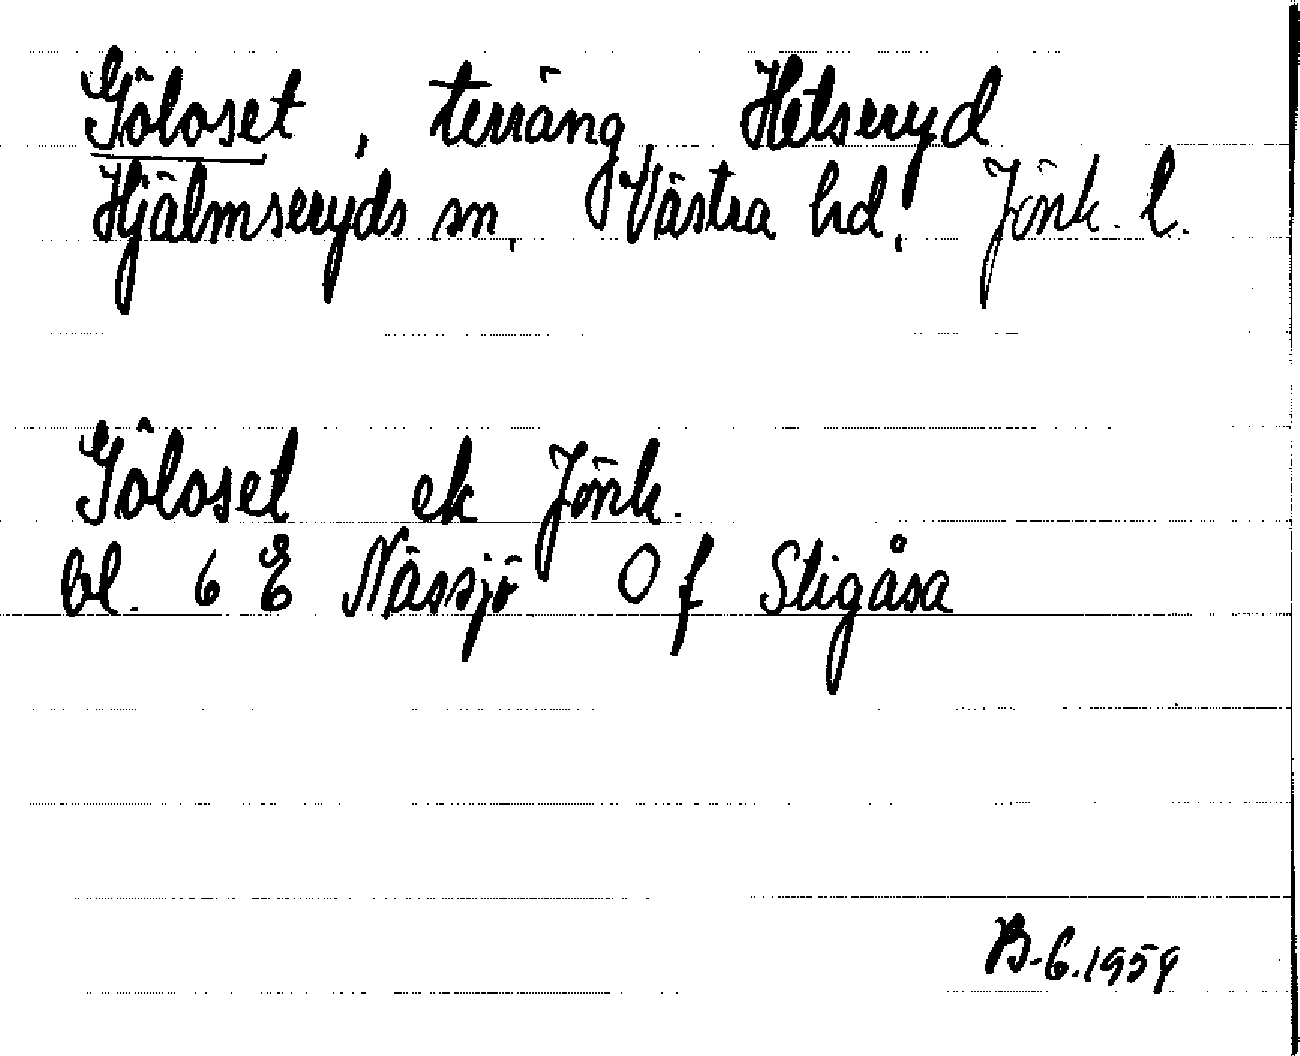 Göloset, terräng, Hetseryd
Hjälmseryds sn, Västra hd, Jönk. l.
Göloset ek Jönk.
bl. 6 E Nässjö 0 f Stigåsa
B-G.1959